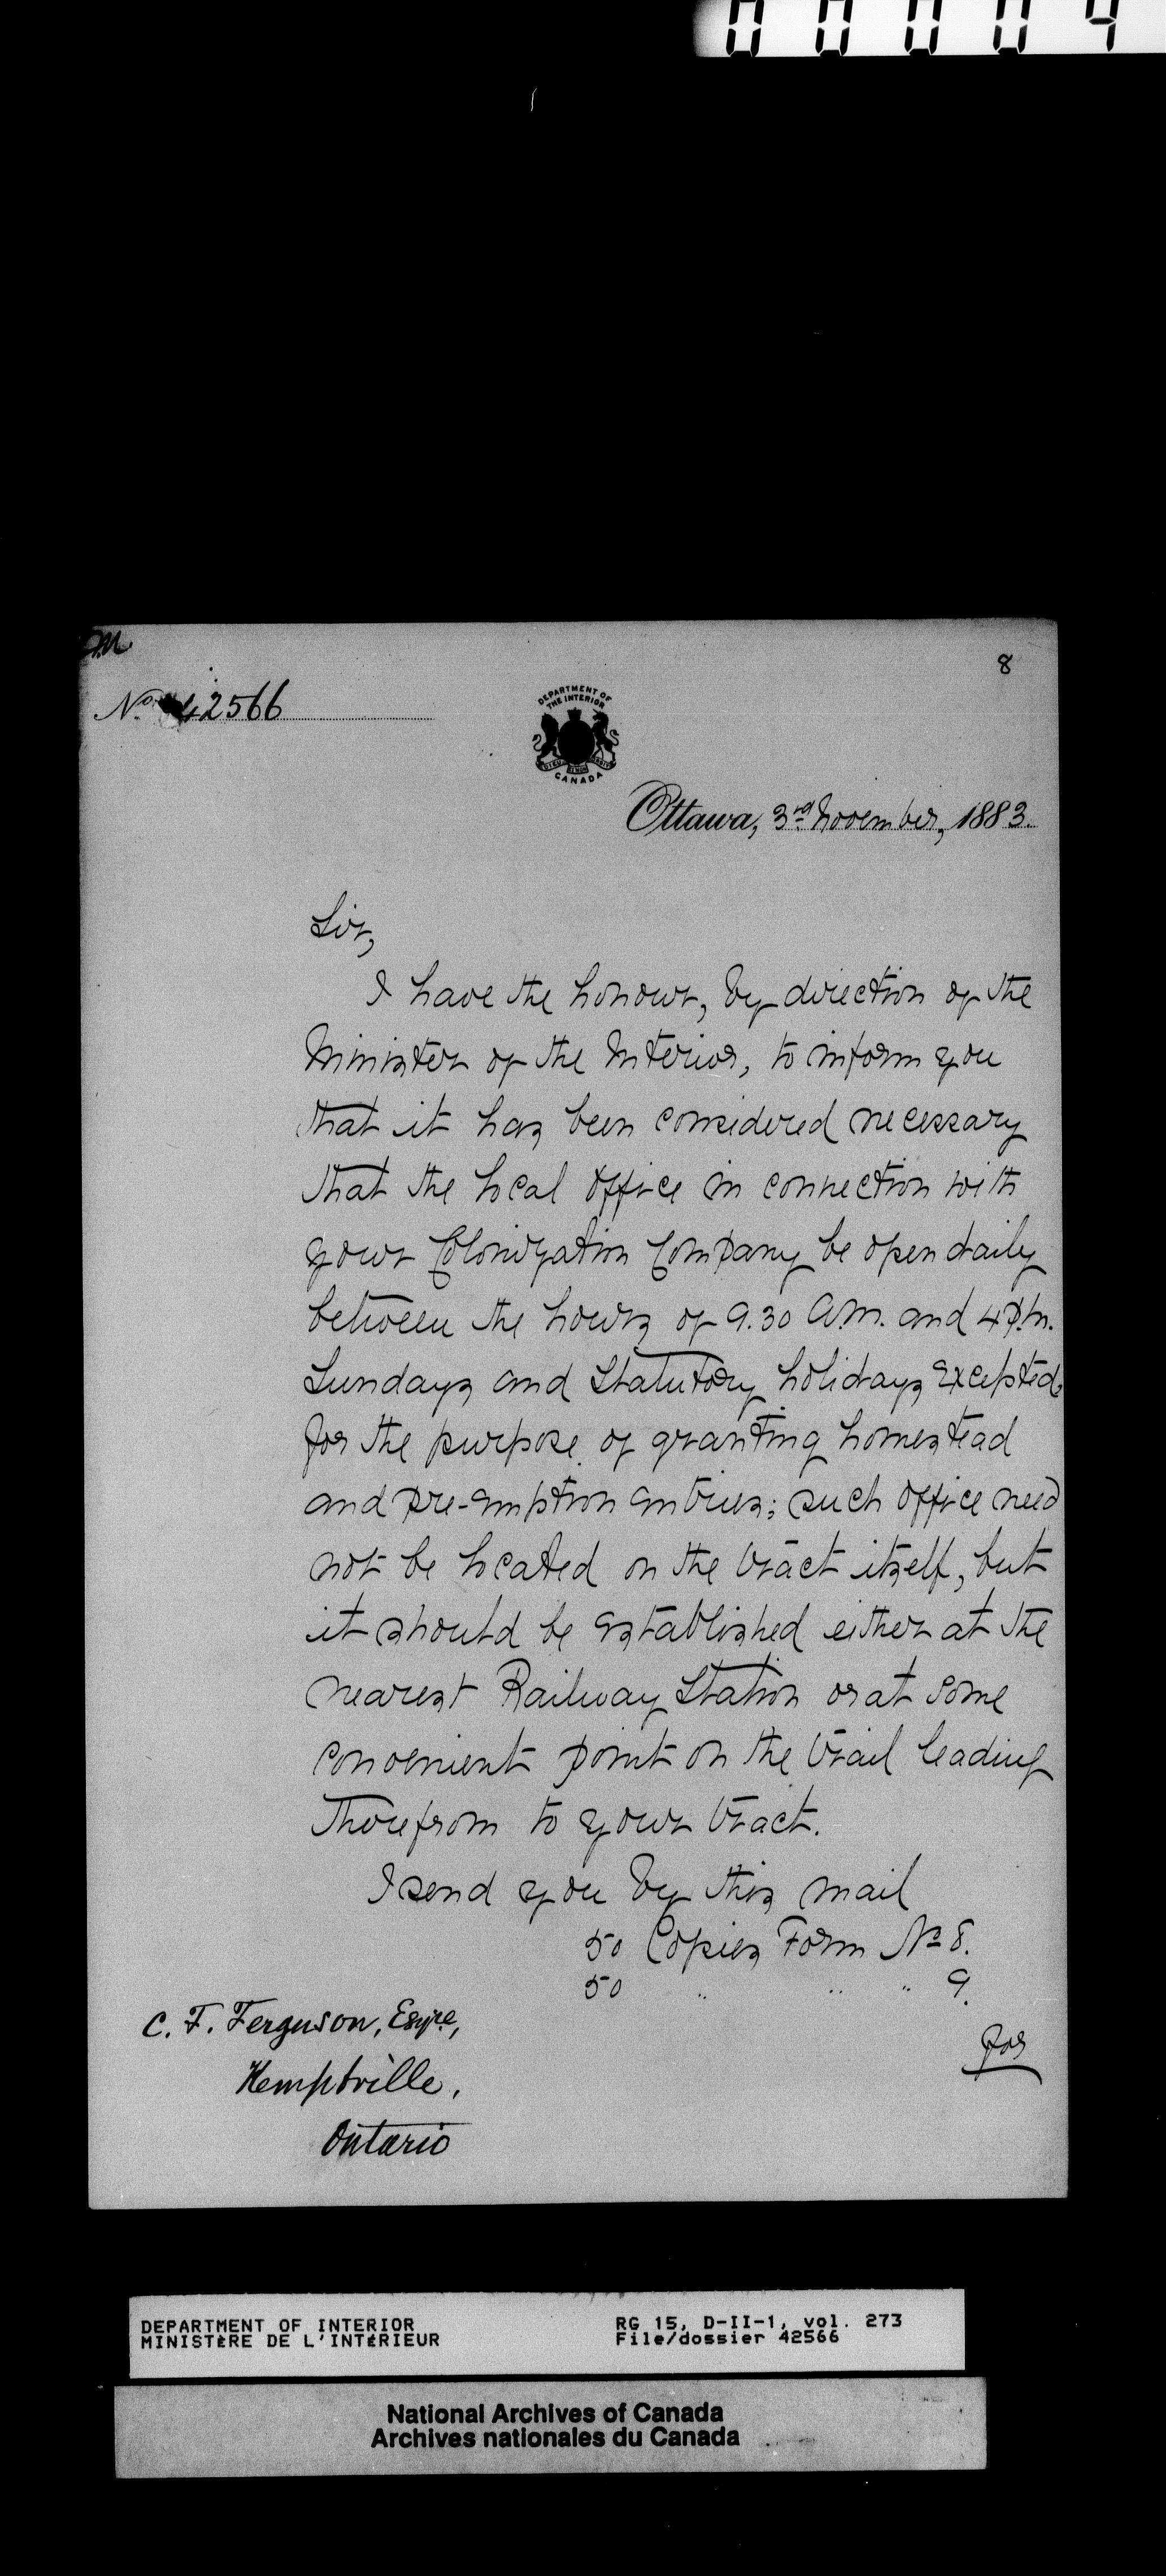 00004
8
No. 42566
DEPARTMENT OF
THE INTERIOR
CANADA
Ottawa, 3rd November, 1883.
Sir,
I have the honour, by direction of the
Minister of the Interior, to inform you
that it has been considered necessary
that the local office in connection with
your Colonization Company be open daily
between the hours of 9.30 A.M. and 4 P.M.
Sundays and Statutory holidays excepted,
for the purpose of granting homestead
and pre-emption entries; such office need
not be located on the tract itself, but
it should be established either at the
nearest Railway Station or at some
convenient point on the trail leading
therefrom to your tract.
I send you by this mail
50 Copies Form No 8.
50 " " " 9.
for
C. F. Ferguson, Esqre,
Kemptville,
Ontario
DEPARTMENT OF INTERIOR RG 15, D-II-1, vol. 273
MINISTÈRE DE L'INTÉRIEUR File/dossier 42566
National Archives of Canada
Archives nationales du Canada